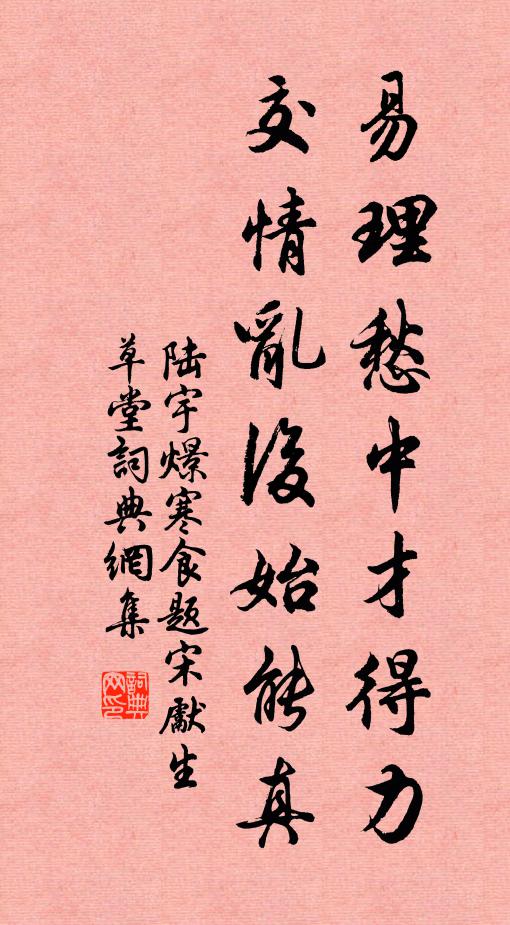 易理愁中才得力
交情亂後始能真
陆宇燝寒食题宋獻生
草堂詞典網集
詞典網印